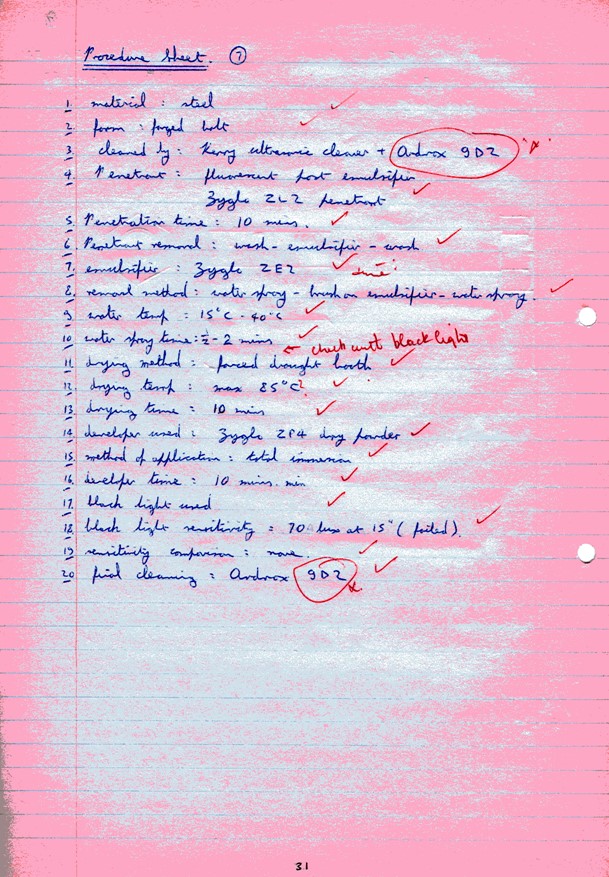 Procedure Sheet. 7
1. material : steel
2. form : forged bolt
3. cleaned by : Kerry ultrasonic cleaner + Ardrox 9D2
4. Penetrant : fluorescent post emulsifier
Zyglo ZL2 penetrant
5. Penetration time : 10 mins.
6. Penetrant removal : wash - emulsifier - wash
7. emulsifier : Zyglo ZE2 time?
8. removal method : water spray - brush on emulsifier - water spray.
9. water temp : 15°C - 40°C
10. water spray time : ½ - 2 mins ← check with black light
11. drying method : forced draught
12. drying temp : max 85°C?
13. drying time : 10 mins
14. developer used : Zyglo ZP4 dry powder
15. method of application : total immersion
16. develper time : 10 mins. min
17. black light used
18. black light sensitivity = 70 lux at 15" (foiled).
19. sensitivity comparison : none.
20. final cleaning : Ardrox 9D2
31